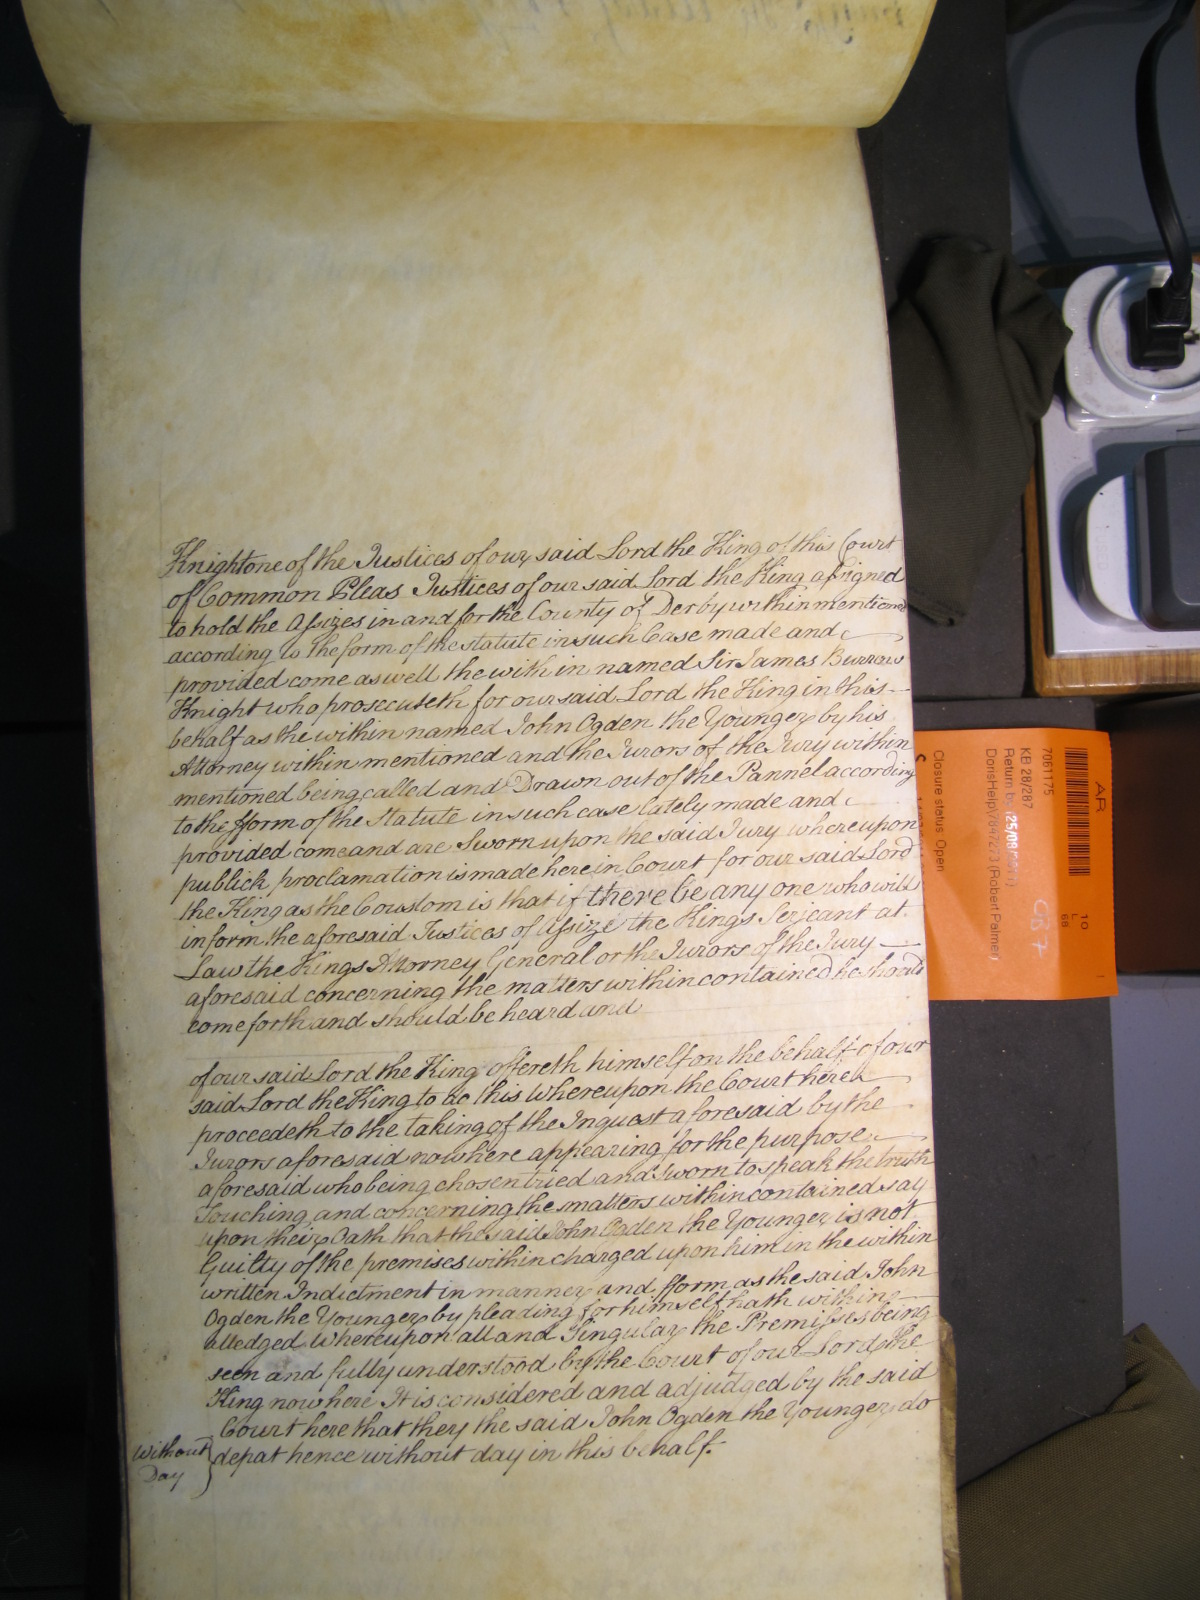 Knight one of the Justices of our said Lord the King of this Court
of Common Pleas Justices of our said Lord the King assigned
to hold the Assizes in and for the County of Derby within mentioned
according to the form of the statute in such Case made and
provided come as well the with in named Sir James Burrow
Knight who prosecuteth for our said Lord the King in this
behalf as the within named John Ogden the Younger by his
Attorney within mentioned and the Jurors of the Jury within
mentioned being called and Drawn out of the Pannel according
to the fform of the Statute in such case lately made and
provided come and are Sworn upon the said Jury whereupon
publick proclamation is made here in Court for our said Lord
the King as the Coustom is that if there be any one who will
inform the aforesaid Justices of Assize the Kings Serjeant at
Law the Kings Attorney General or the Jurors of the Jury
aforesaid concerning the matters within contained he should
come forth and should be heard and
of our said Lord the King offereth himself on the behalf of our
said Lord the King to do this whereupon the Court here
proceedeth to the taking of the Inquest aforesaid by the
Jurors aforesaid now here appearing for the purpose
aforesaid who being chosen tried and Sworn to speak the truth
Touching and concerning the matters within contained say
upon their Oath that the said John Ogden the Younger is not
Guilty of the premises within charged upon him in the within
written Indictment in manner and fform as the said John
Ogden the Younger by pleading for himself hath within
alledged Whereupon all and Singular the Premisses being
seen and fully understood by the Court of our Lord the
King now here It is considered and adjudged by the said
Court here that they the said John Ogden the Younger do
depat hence without day in this behalf.
Without
Day
AR
7061175
KB 28/287
Return by
DorisHelp
(Robert Palmer)
Closure status: Open
10
L
68